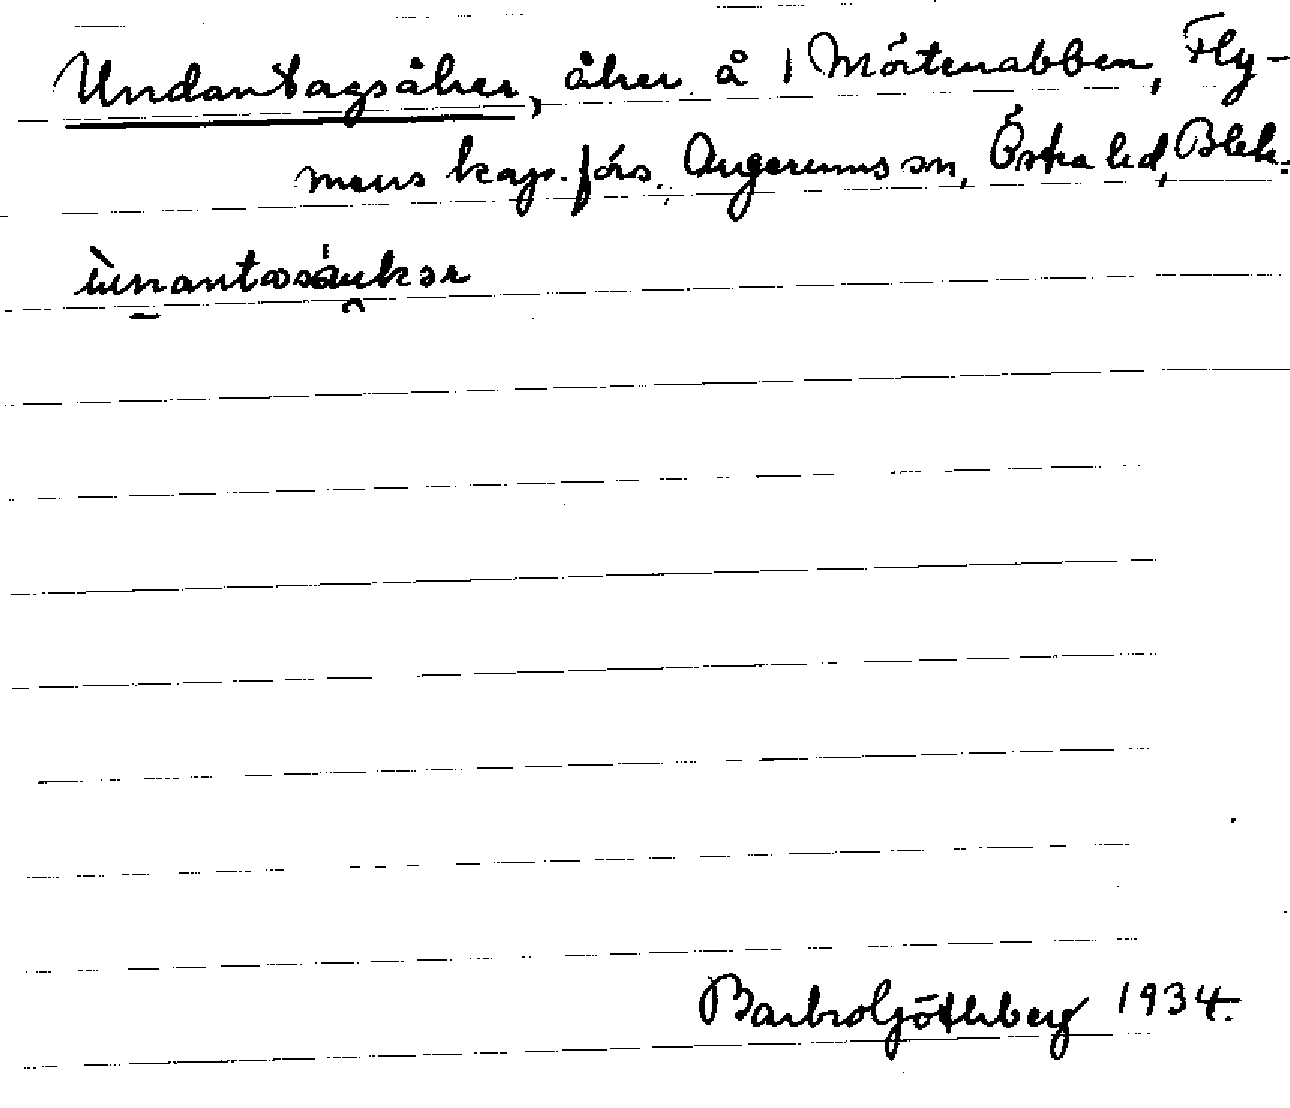 Undantagsåker, åker å 1 Mörtenabben, Fly-
mens kap.förs. Augerums sn, Östra hd, Blek.
Barbro Göthberg 1934.